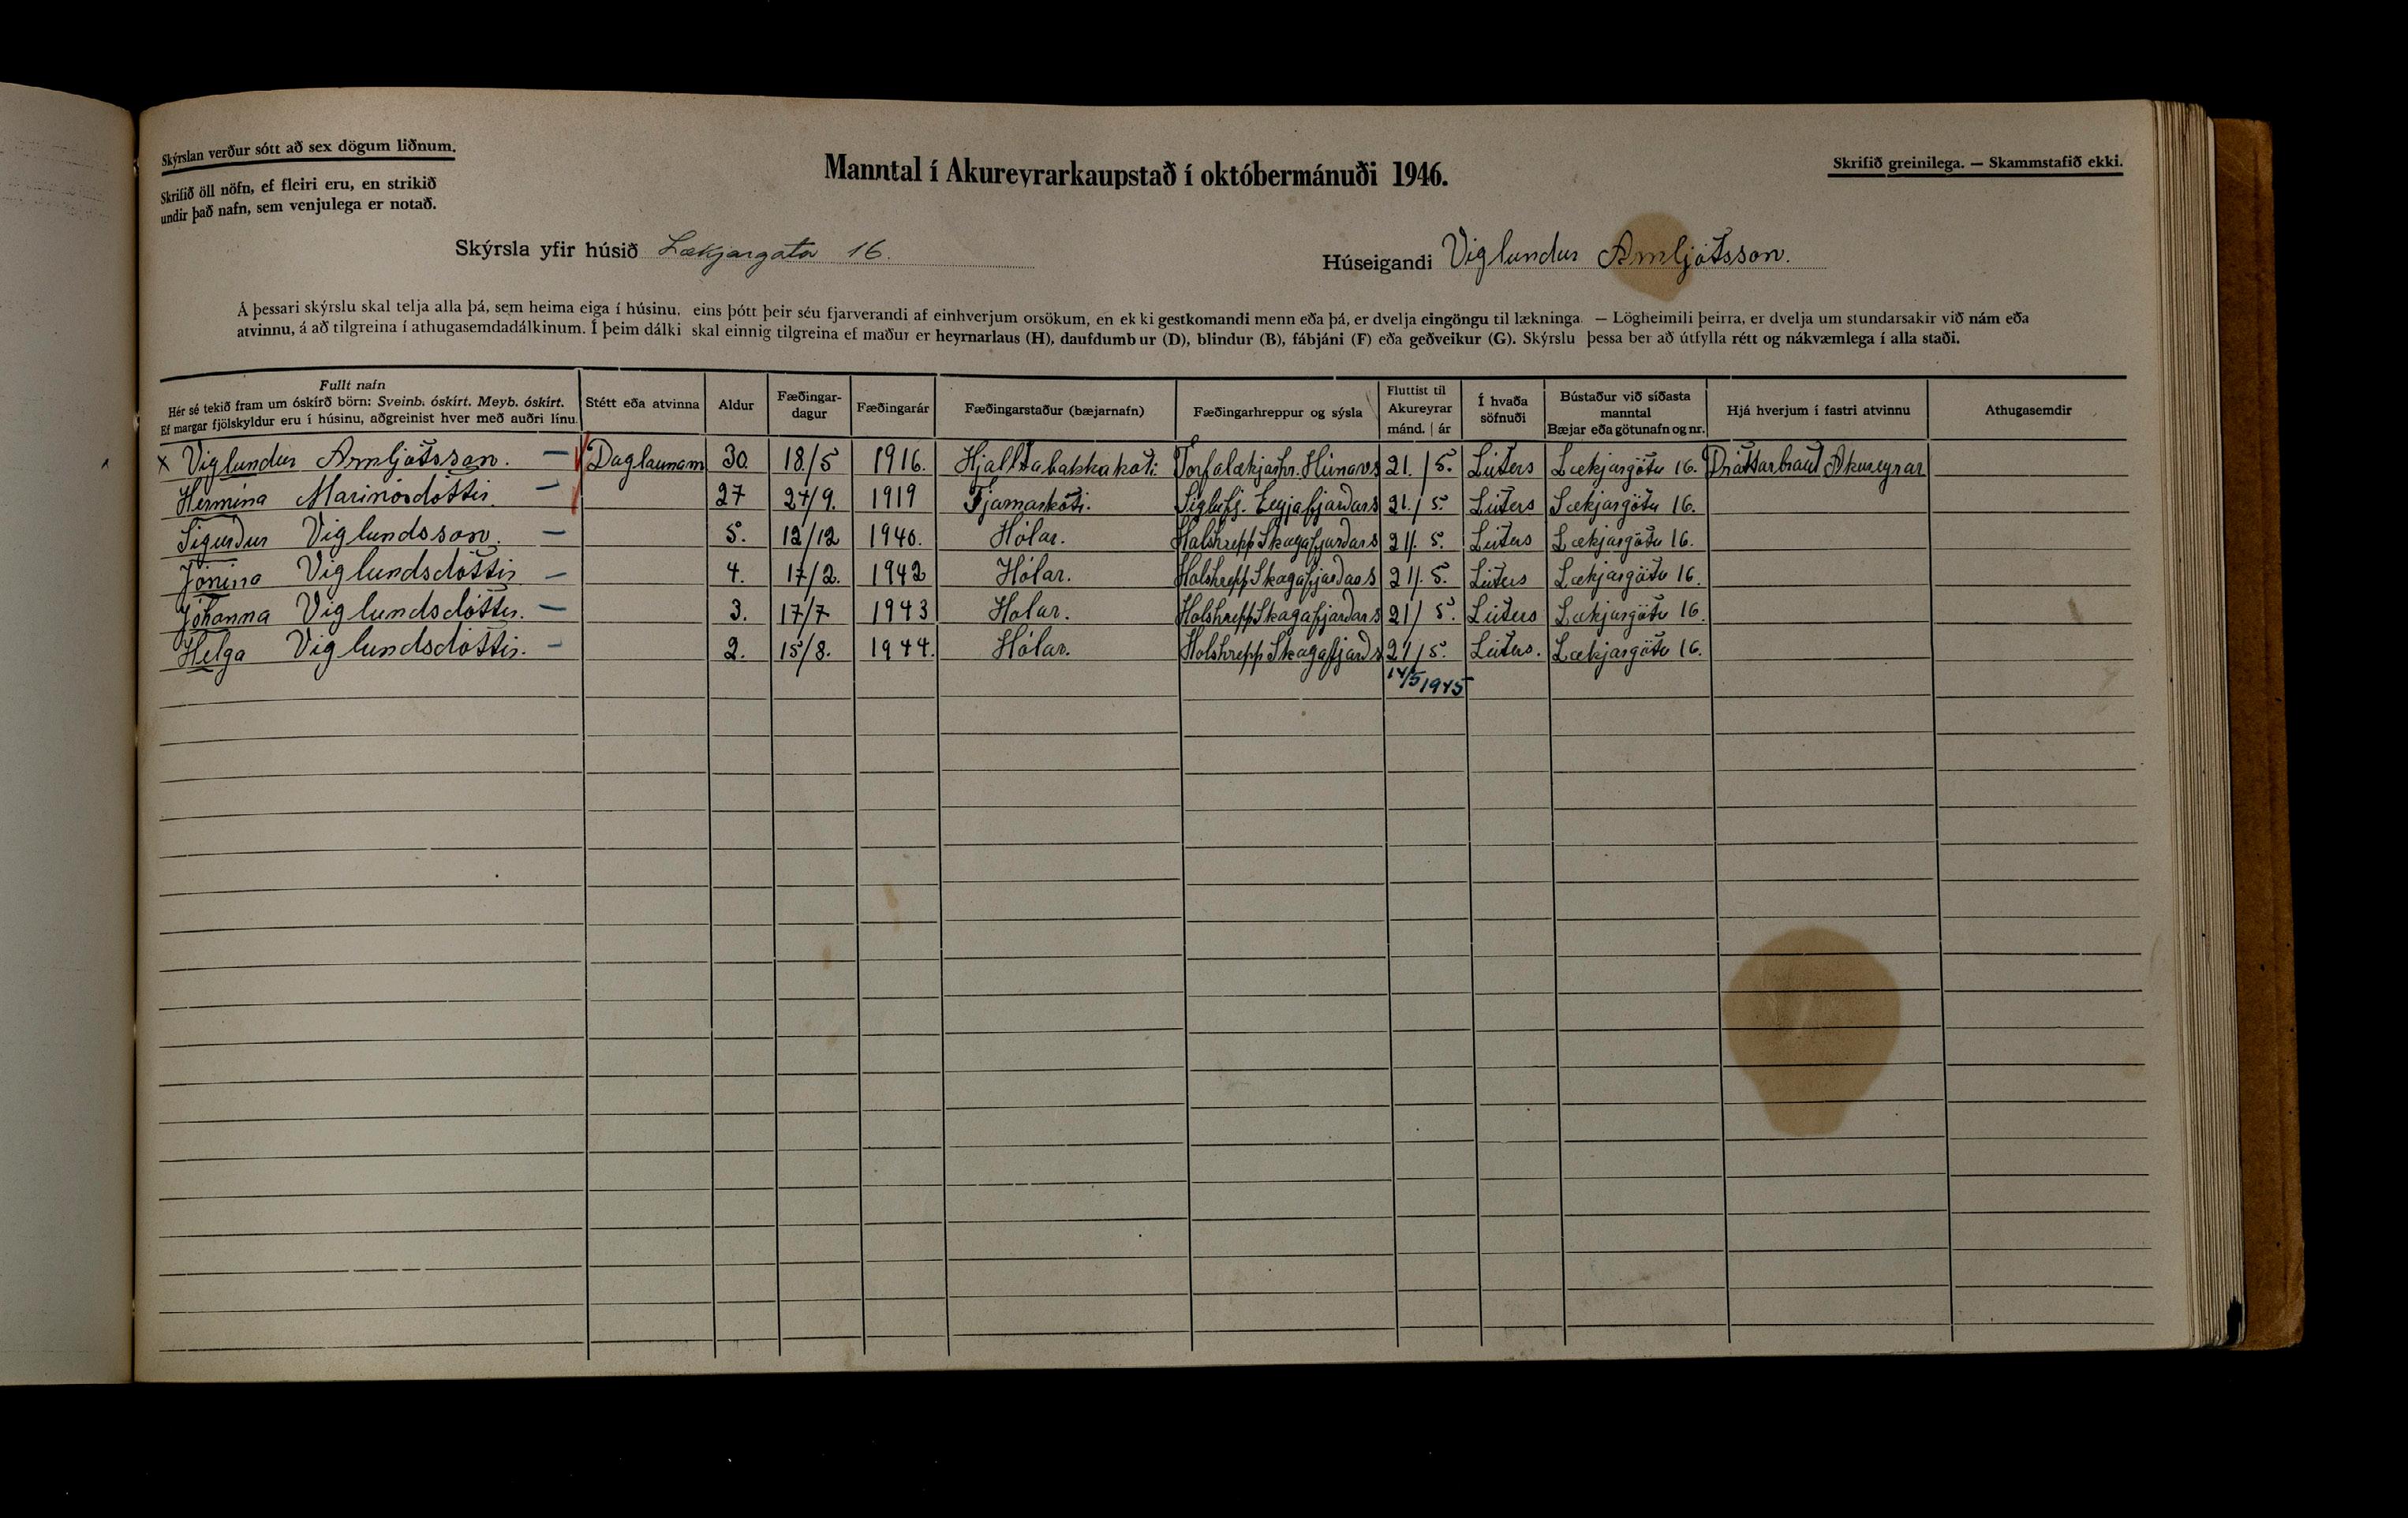 Skýrslan verður sótt að sex dögum liðnum.
Skrifið öll nöfn, ef fleiri eru, en strikið
undir það nafn, sem venjulega er notað.
Manntal í Akureyrarkaupstað í októbermánuði 1946.
Skrifið greinilega. — Skammstafið ekki.
Skýrsla yfir húsið Lækjargata 16.
Húseigandi Viglundur Arnljótsson.
Á þessari skýrslu skal telja alla þá, sem heima eiga í húsinu, eins þótt þeir séu fjarverandi af einhverjum orsökum, en ekki gestkomandi menn eða þá, er dvelja eingöngu til lækninga. — Lögheimili þeirra, er dvelja um stundarsakir við nám eða
atvinnu, á að tilgreina í athugasemdadálkinum. Í þeim dálki skal einnig tilgreina ef maður er heyrnarlaus (H), daufdumbur (D), blindur (B), fábjáni (F) eða geðveikur (G). Skýrslu þessa ber að útfylla rétt og nákvæmlega í alla staði.
Fullt nafn
Hér sé tekið fram um óskírð börn: Sveinb. óskírt. Meyb. óskírt.
Ef margar fjölskyldur eru í húsinu, aðgreinist hver með auðri línu.
Stétt eða atvinna
Aldur
Fæðingar-
dagur
Fæðingarár
Fæðingarstaður (bæjarnafn)
Fæðingarhreppur og sýsla
Fluttist til
Akureyrar
mánd. | ár
Í hvaða
söfnuði
Bústaður við síðasta
manntal
Bæjar eða götunafn og nr.
Hjá hverjum í fastri atvinnu
Athugasemdir
x Viglundur Arnljótsson. — Daglaunam 30 18/5 1916. Hjaltabakkakoti Torfalækjarhr. Húnavs 21./5. Lúters Lækjargötu 16. Dráttarbraut Akureyrar
Hermína Marinósdóttir. — 27 27/9. 1919 Tjarnarkoti. Siglufj. Eyjafjarðars 21./5. Lúters Lækjargötu 16.
Sigurður Viglundsson. — 5. 12/12 1940. Hólar. Holshrepp Skagafjarðars 21/. 5. Lúters Lækjargötu 16.
Jónína Viglundsdóttir — 4. 17/2. 1942 Hólar. Holshrepp Skagafjarðars 21/. 5. Lúters Lækjargötu 16.
Jóhanna Viglundsdóttir. — 3. 17/7 1943 Holar. Holshrepp Skagafjarðars 21/ 5. Lúters Lækjargötu 16.
Helga Viglundsdóttir. — 2. 15/8. 1944. Hólar. Holshrepp Skagafjarðs 21/5. Lúters. Lækjargötu 16.
14/5 1945